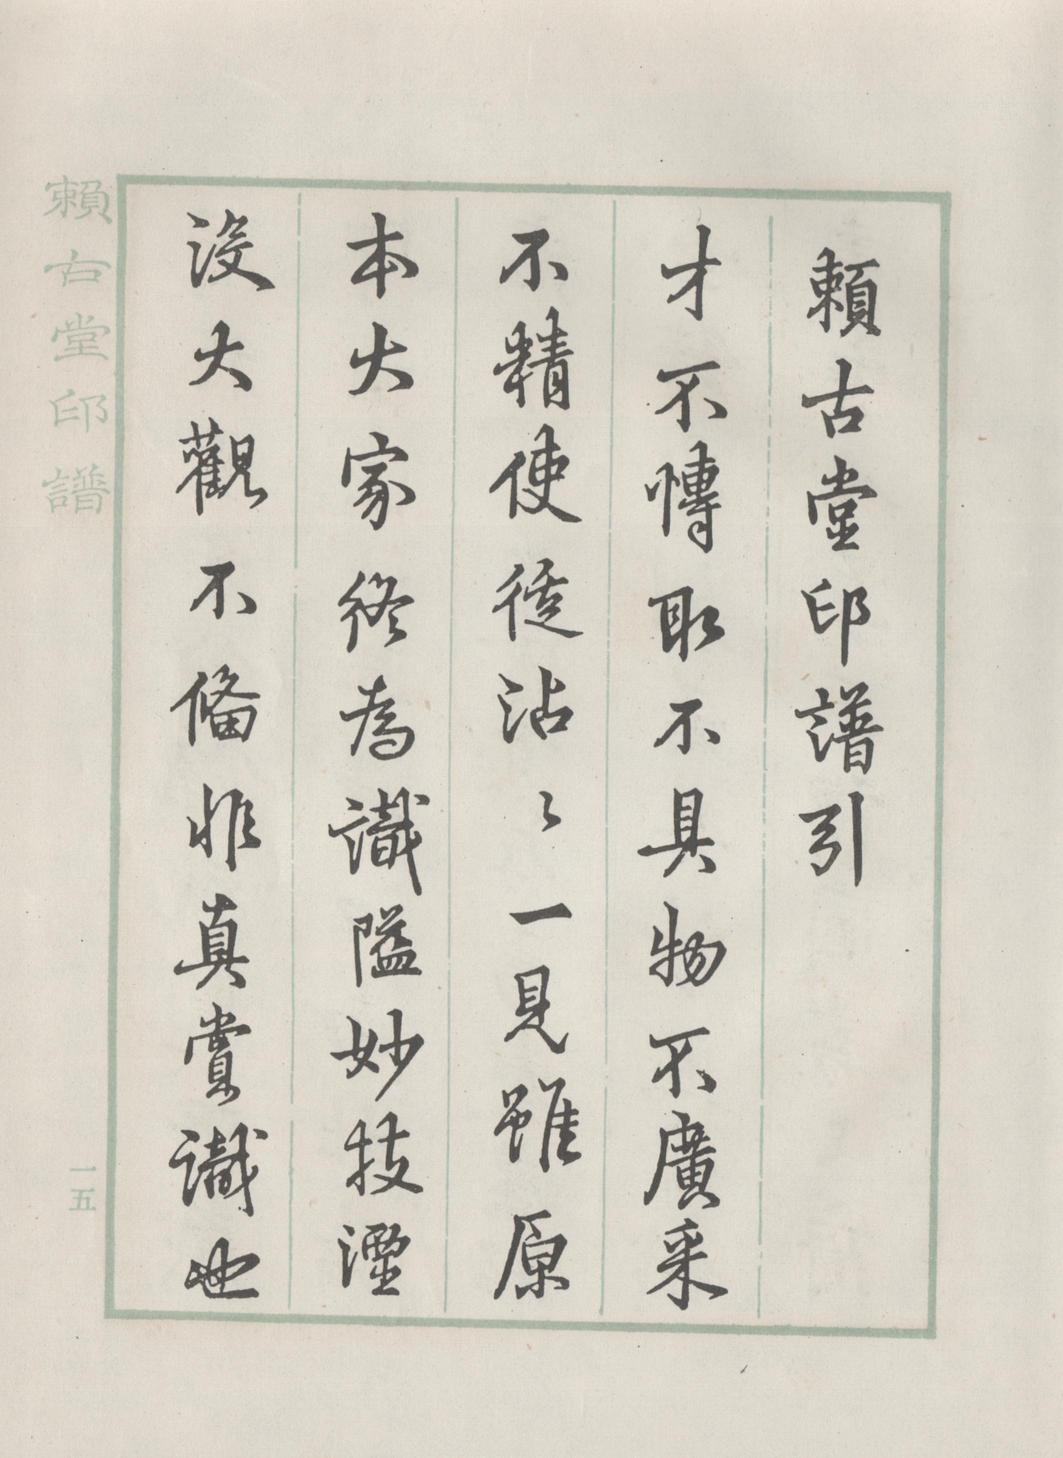 賴古堂印譜引
才不博取不具物不廣采
不精使徒沾〻一見雖原
本大家終為識隘妙技湮
沒大觀不備非真賞識也
賴古堂印譜
一五